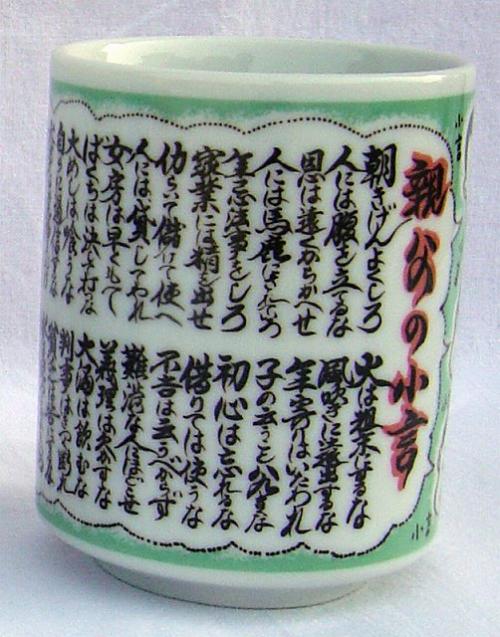 親父の小言
朝きげんよくしろ
人には腹を立てるな
恩は遠くからかへせ
人には馬鹿にされていろ
年忌法事をしろ
家業には精を出せ
仂らいて儲けて使へ
人には貸してやれ
女房は早くもて
ばくちは決して打な
大めしは喰うな
火は粗末にするな
風吹きに遠出するな
年寄りはいたわれ
子の云うこと八九きくな
初心は忘れるな
借りては使うな
不吉は云うべからず
難渋な人にほどこせ
義理は欠かすな
大酒は飲むな
判事はきつと断れ
小言